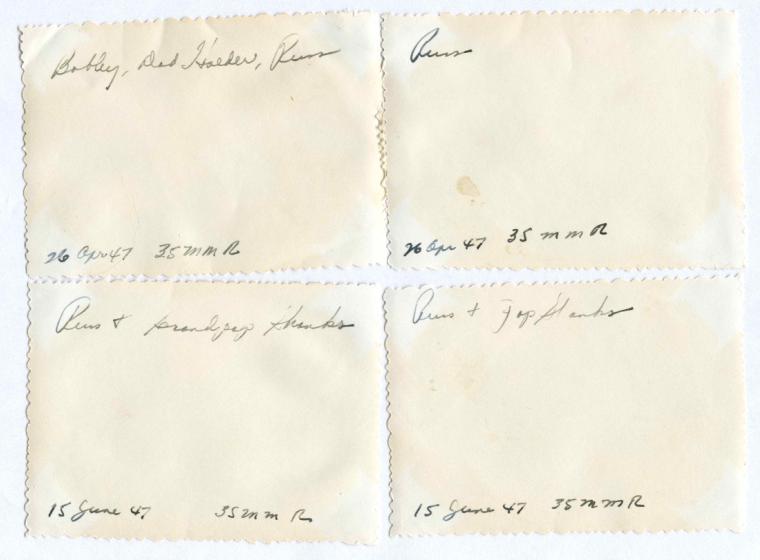 Bobby, Dad Holder, Russ
26 Apr 47 35 mm R
Russ
26 Apr 47 35 mm R
Russ + Grandpop Shanks
15 June 47 35 mm R
Russ + Pop Shanks
15 June 47 35 mm R